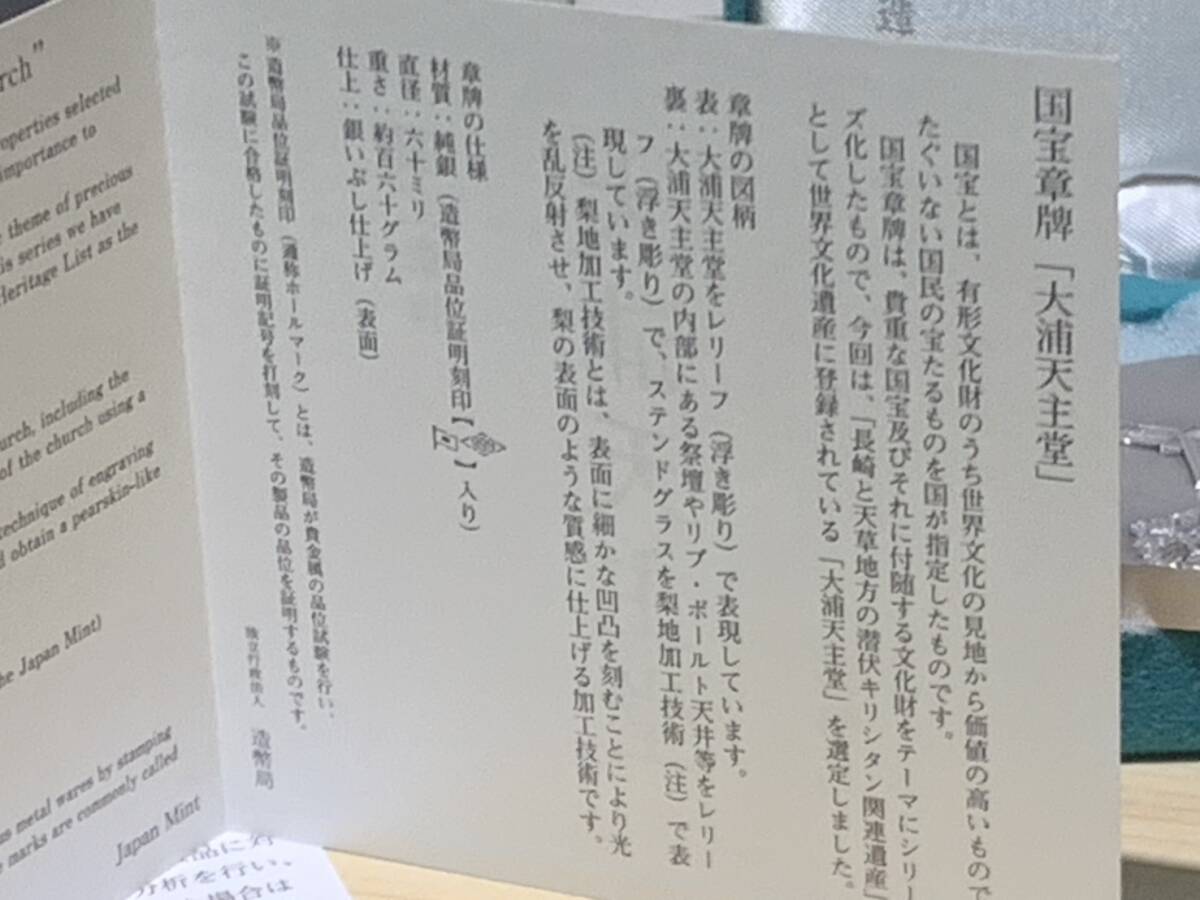 国宝章牌「大浦天主堂」
国宝とは、有形文化財のうち世界文化の見地から価値の高いもので
たぐいない国民の宝たるものを国が指定したものです。
国宝章牌は、貴重な国宝及びそれに付随する文化財をテーマにシリー
ズ化したもので、今回は、「長崎と天草地方の潜伏キリシタン関連遺産」
として世界文化遺産に登録されている「大浦天主堂」を選定しました。
章牌の図柄
表：大浦天主堂をレリーフ（浮き彫り）で表現しています。
裏：大浦天主堂の内部にある祭壇やリブ・ボールト天井等をレリー
フ（浮き彫り）で、ステンドグラスを梨地加工技術（注）で表
現しています。
（注）梨地加工技術とは、表面に細かな凹凸を刻むことにより光
を乱反射させ、梨の表面のような質感に仕上げる加工技術です。
章牌の仕様
材質：純銀（造幣局品位証明刻印【】入り）
直径：六十ミリ
重さ：約百六十グラム
仕上：銀いぶし仕上げ（表面）
※造幣局品位証明刻印（通称ホールマーク）とは、造幣局が貴金属の品位試験を行い、
この試験に合格したものに証明記号を打刻して、その製品の品位を証明するものです。
独立行政法人 造幣局
rch”
operties selected
importance to
theme of precious
is series we have
Heritage List as the
urch, including the
of the church using a
technique of engraving
d obtain a pearskin-like
he Japan Mint)
us metal wares by stamping
marks are commonly called
Japan Mint
品に対
分析を行い、
場合は
造